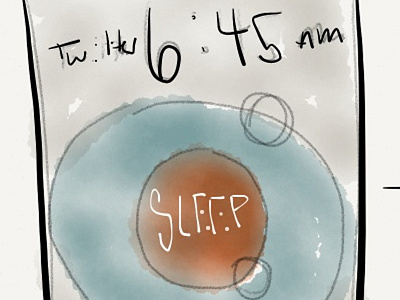 Twitter 6:45 am
SLEEP